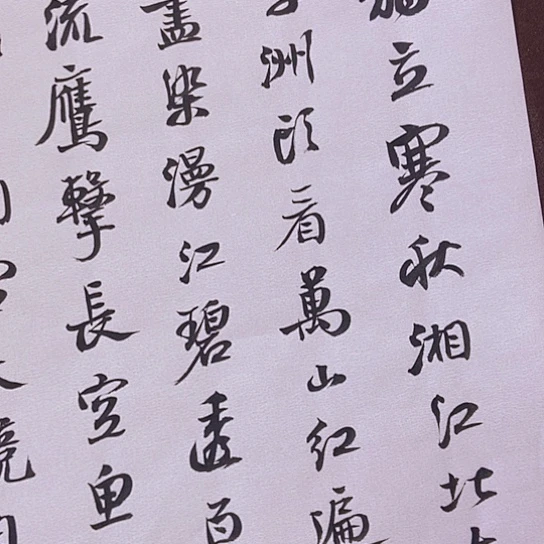 立寒秋湘江北
洲頭看萬山紅遍
盡染漫江碧透百
流鷹擊長空魚
競